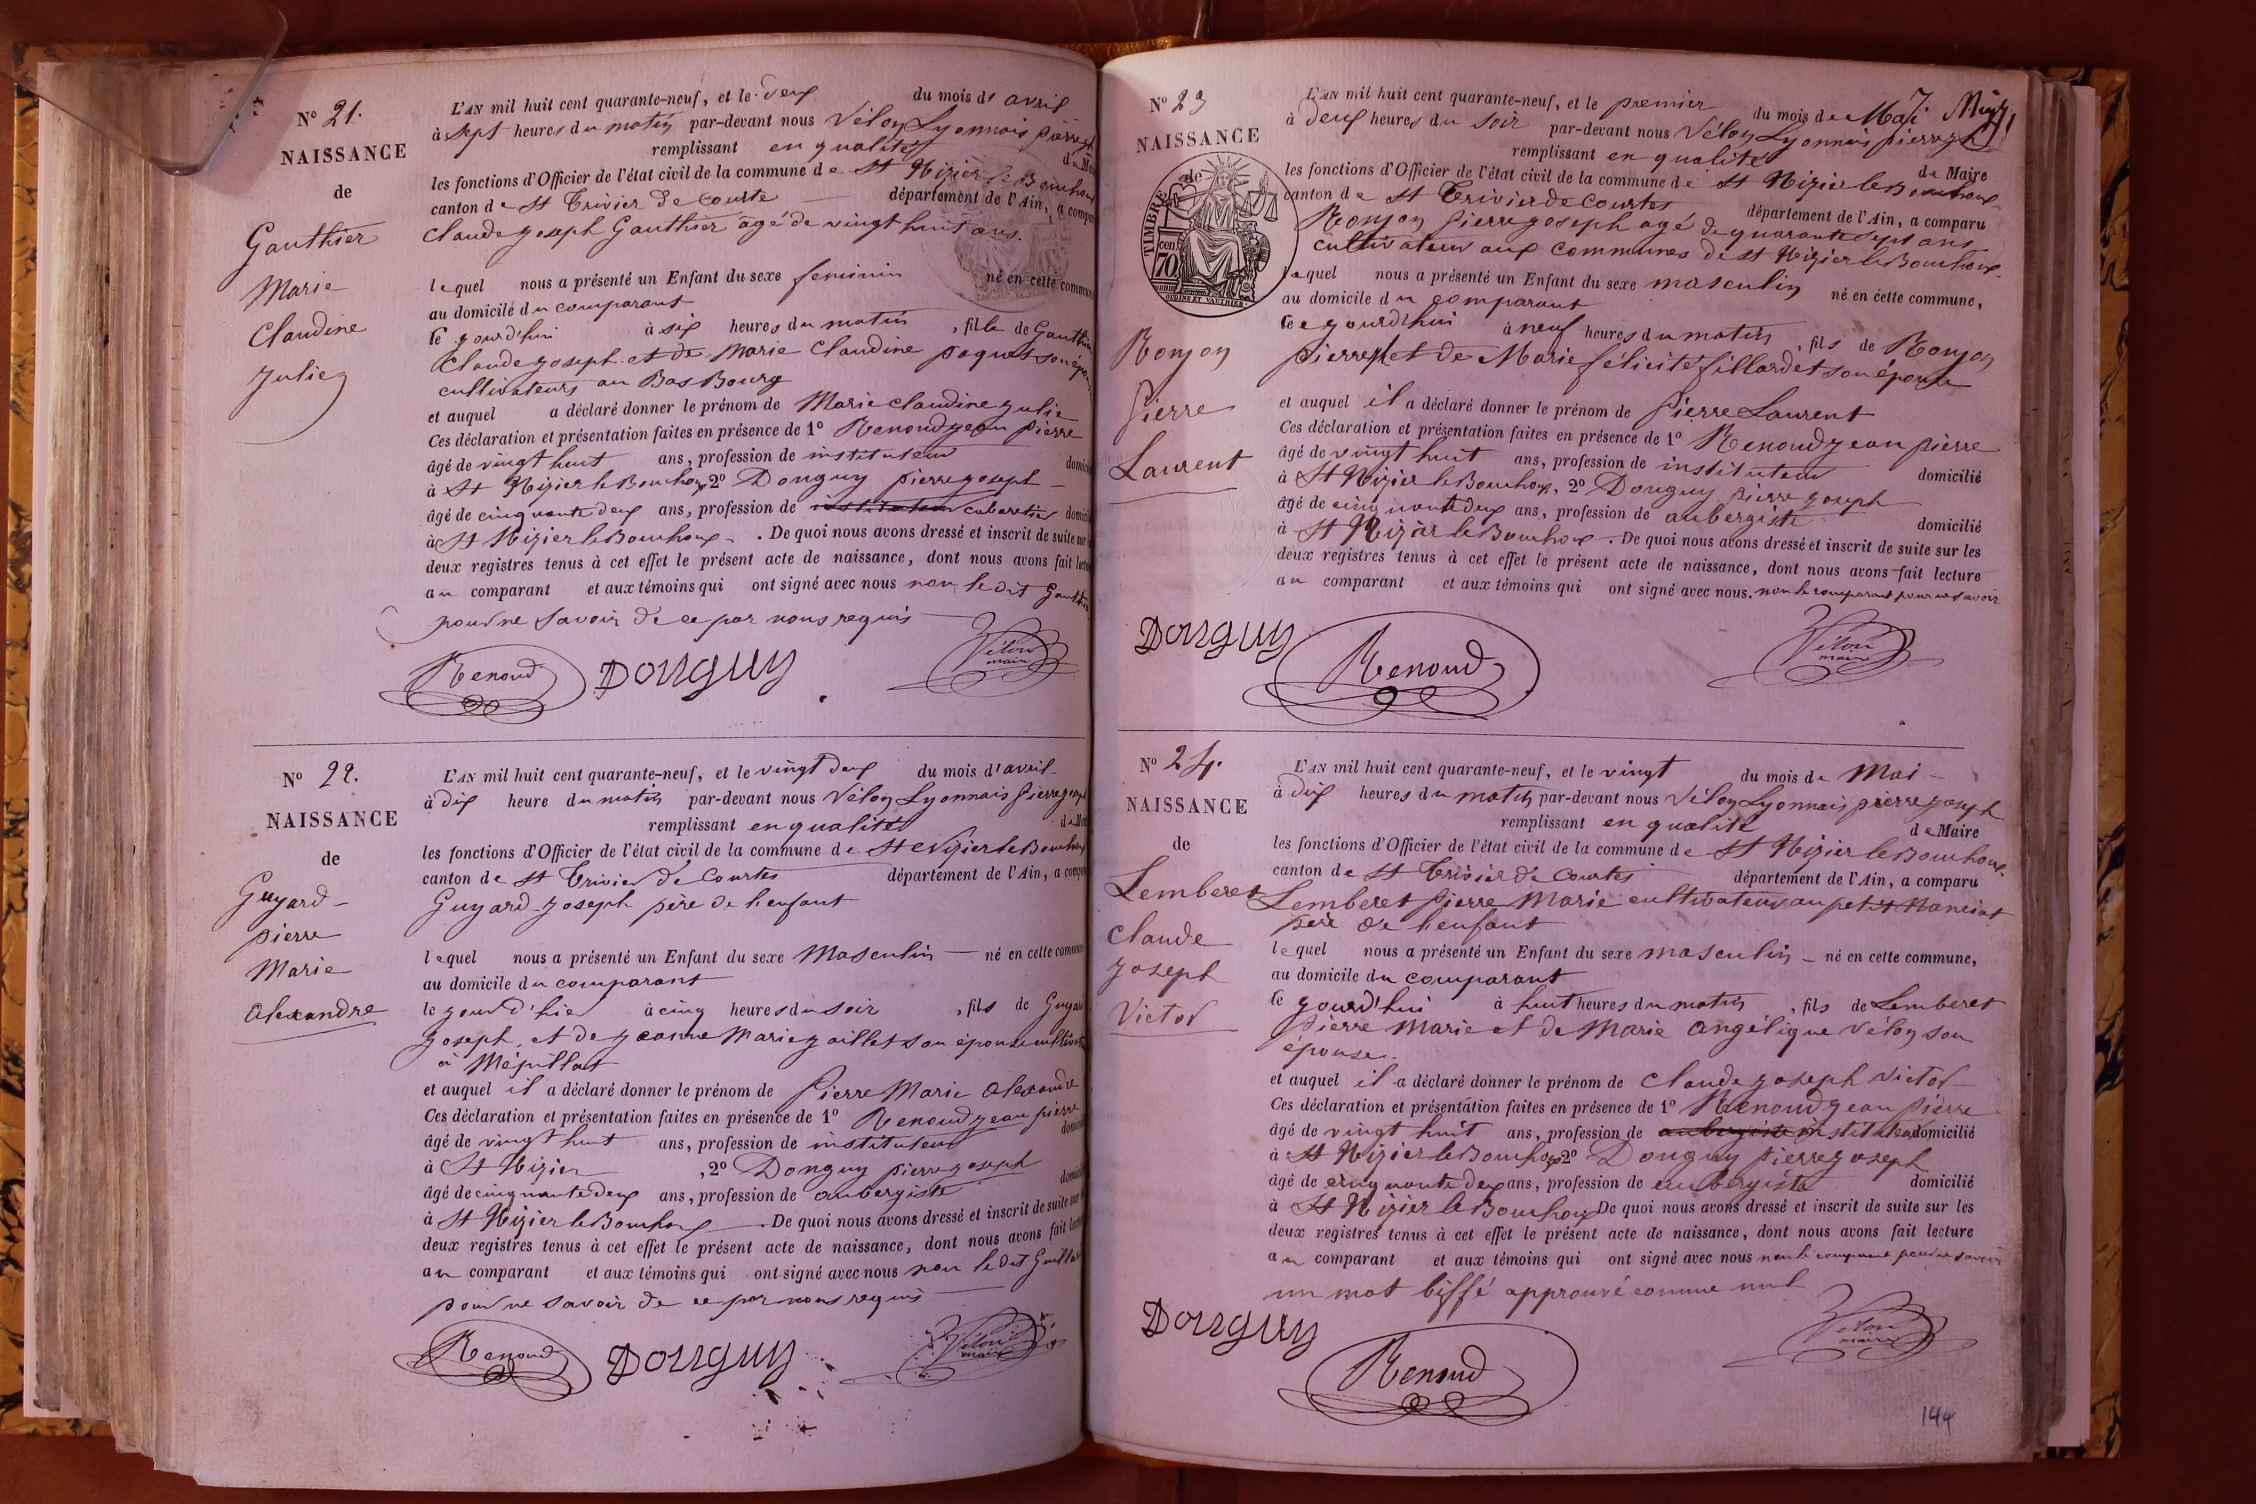 N° 21.
NAISSANCE
de
Gauthier
Marie
Claudine
Julie
L'AN mil huit cent quarante-neuf, et le deux du mois d' avril
à sept heures du matin par-devant nous Vélon Lyonnais pierre
remplissant en qualité
les fonctions d'Officier de l'état civil de la commune de St Nizier le Bouchoux
canton de St Trivier de Courte département de l'Ain, a comparu
Claude joseph Gauthier âgé de vingt huit ans.
lequel nous a présenté un Enfant du sexe feminin né en cette commune
au domicile du comparant
le jourd'hui à six heures du matin, fille de Gauthier
Claude joseph et de Marie Claudine paquet son épouse
cultivateurs au Bas Bourg
et auquel a déclaré donner le prénom de Marie claudine julie
Ces déclaration et présentation faites en présence de 1° Renoud jean pierre
âgé de vingt huit ans, profession de instituteur
à St Nizier le Bouchoux 2° Donguy pierre joseph
âgé de cinquante deux ans, profession de instituteur cabaretier
à St Nizier le Bouchoux. De quoi nous avons dressé et inscrit de suite sur
deux registres tenus à cet effet le présent acte de naissance, dont nous avons fait lecture
au comparant et aux témoins qui ont signé avec nous non le dit Gauthier
pour ne savoir de ce par nous requis
Renoud Donguy Vélon
maire
N° 22.
NAISSANCE
de
Guyard
pierre
Marie
alexandre
L'AN mil huit cent quarante-neuf, et le vingt deux du mois d'avril
à dix heure du matin par-devant nous Vélon Lyonnais pierre joseph
remplissant en qualité
les fonctions d'Officier de l'état civil de la commune de St Nizier le Bouchoux
canton de St Trivier de Courtes département de l'Ain, a comparu
Guyard joseph père de l'enfant
lequel nous a présenté un Enfant du sexe Masculin né en cette commune
au domicile du comparant
le jour d'hier à cinq heures du soir, fils de Guyard
joseph, et de jeanne Marie jaillet son épouse
à Mépillat
et auquel il a déclaré donner le prénom de Pierre Marie alexandre
Ces déclaration et présentation faites en présence de 1° Renoud jean pierre
âgé de vingt huit ans, profession de instituteur
à St Nizier, 2° Donguy pierre joseph
âgé de cinquante deux ans, profession de aubergiste
à St Nizier le Bouchoux. De quoi nous avons dressé et inscrit de suite sur
deux registres tenus à cet effet le présent acte de naissance, dont nous avons fait lecture
au comparant et aux témoins qui ont signé avec nous non le dit
pour ne savoir de ce par nous requis
Renoud Donguy Vélon
maire
N° 23
NAISSANCE
de
TIMBRE
cen
70
Ronjon
Pierre
Laurent
L'AN mil huit cent quarante-neuf, et le premier du mois de Mai
à deux heures du soir par-devant nous Vélon Lyonnais pierre jh
remplissant en qualité de Maire
les fonctions d'Officier de l'état civil de la commune de St Nizier le Bouchoux
canton de St Trivier de Courtes département de l'Ain, a comparu
Ronjon Pierre joseph agé de quarante sept ans
cultivateur aux communes de St Nizier le Bouchoux.
lequel nous a présenté un Enfant du sexe masculin né en cette commune,
au domicile du comparant
le jourd'hui à neuf heures du matin, fils de Ronjon
pierre jh et de Marie félicité fillardet son épouse
et auquel il a déclaré donner le prénom de Pierre Laurent
Ces déclaration et présentation faites en présence de 1° Renoud jean pierre
âgé de vingt huit ans, profession de instituteur domicilié
à St Nizier le Bouchoux, 2° Donguy pierre joseph
âgé de cinquante deux ans, profession de aubergiste domicilié
à St Nizier le Bouchoux. De quoi nous avons dressé et inscrit de suite sur les
deux registres tenus à cet effet le présent acte de naissance, dont nous avons fait lecture
au comparant et aux témoins qui ont signé avec nous. non le comparant pour ne savoir
Donguy Renoud Vélon
maire
N° 24.
NAISSANCE
de
Lemberet
Claude
joseph
Victor
L'AN mil huit cent quarante-neuf, et le vingt du mois de Mai
à dix heures du matin par-devant nous Vélon Lyonnais pierre joseph
remplissant en qualité de Maire
les fonctions d'Officier de l'état civil de la commune de St Nizier le Bouchoux.
canton de St Trivier de Courtes département de l'Ain, a comparu
Lemberet pierre Marie cultivateur au petit Manciat
père de l'enfant
lequel nous a présenté un Enfant du sexe masculin né en cette commune,
au domicile du comparant
le jourd'hui à huit heures du matin, fils de Lemberet
pierre Marie et de Marie angélique Vélon son
épouse.
et auquel il a déclaré donner le prénom de claude joseph victor
Ces déclaration et présentation faites en présence de 1° Renoud jean pierre
âgé de vingt huit ans, profession de aubergiste instituteur domicilié
à St Nizier le Bouchoux 2° Donguy pierre joseph
âgé de cinquante deux ans, profession de aubergiste domicilié
à St Nizier le Bouchoux De quoi nous avons dressé et inscrit de suite sur les
deux registres tenus à cet effet le présent acte de naissance, dont nous avons fait lecture
au comparant et aux témoins qui ont signé avec nous non le comparant pour ne savoir
un mot biffé approuvé comme nul
Donguy Renoud Vélon
maire
144